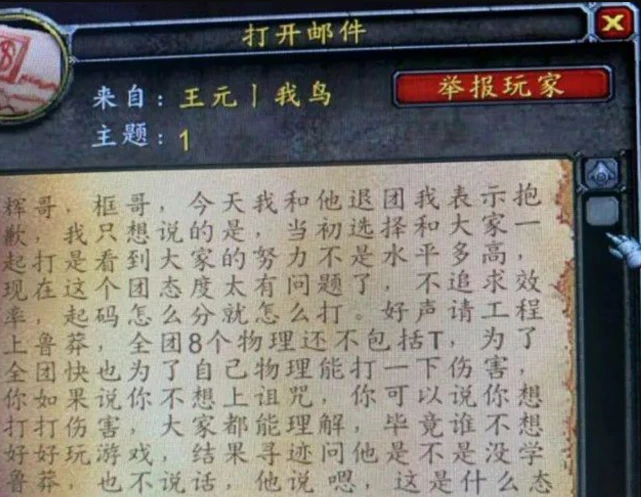 打开邮件
来自：王元丨我鸟
举报玩家
主题：1
辉哥，框哥，今天我和他退团我表示抱
歉，我只想说的是，当初选择和大家一
起打是看到大家的努力不是水平多高，
现在这个团态度太有问题了，不追求效
率，起码怎么分就怎么打。好声请工程
上鲁莽，全团8个物理还不包括T，为了
全团快也为了自己物理能打一下伤害，
你如果说你不想上诅咒，你可以说你想
打打伤害，大家都能理解，毕竟谁不想
好好玩游戏，结果寻迹问他是不是没学
鲁莽，也不说话，他说嗯，这是什么态